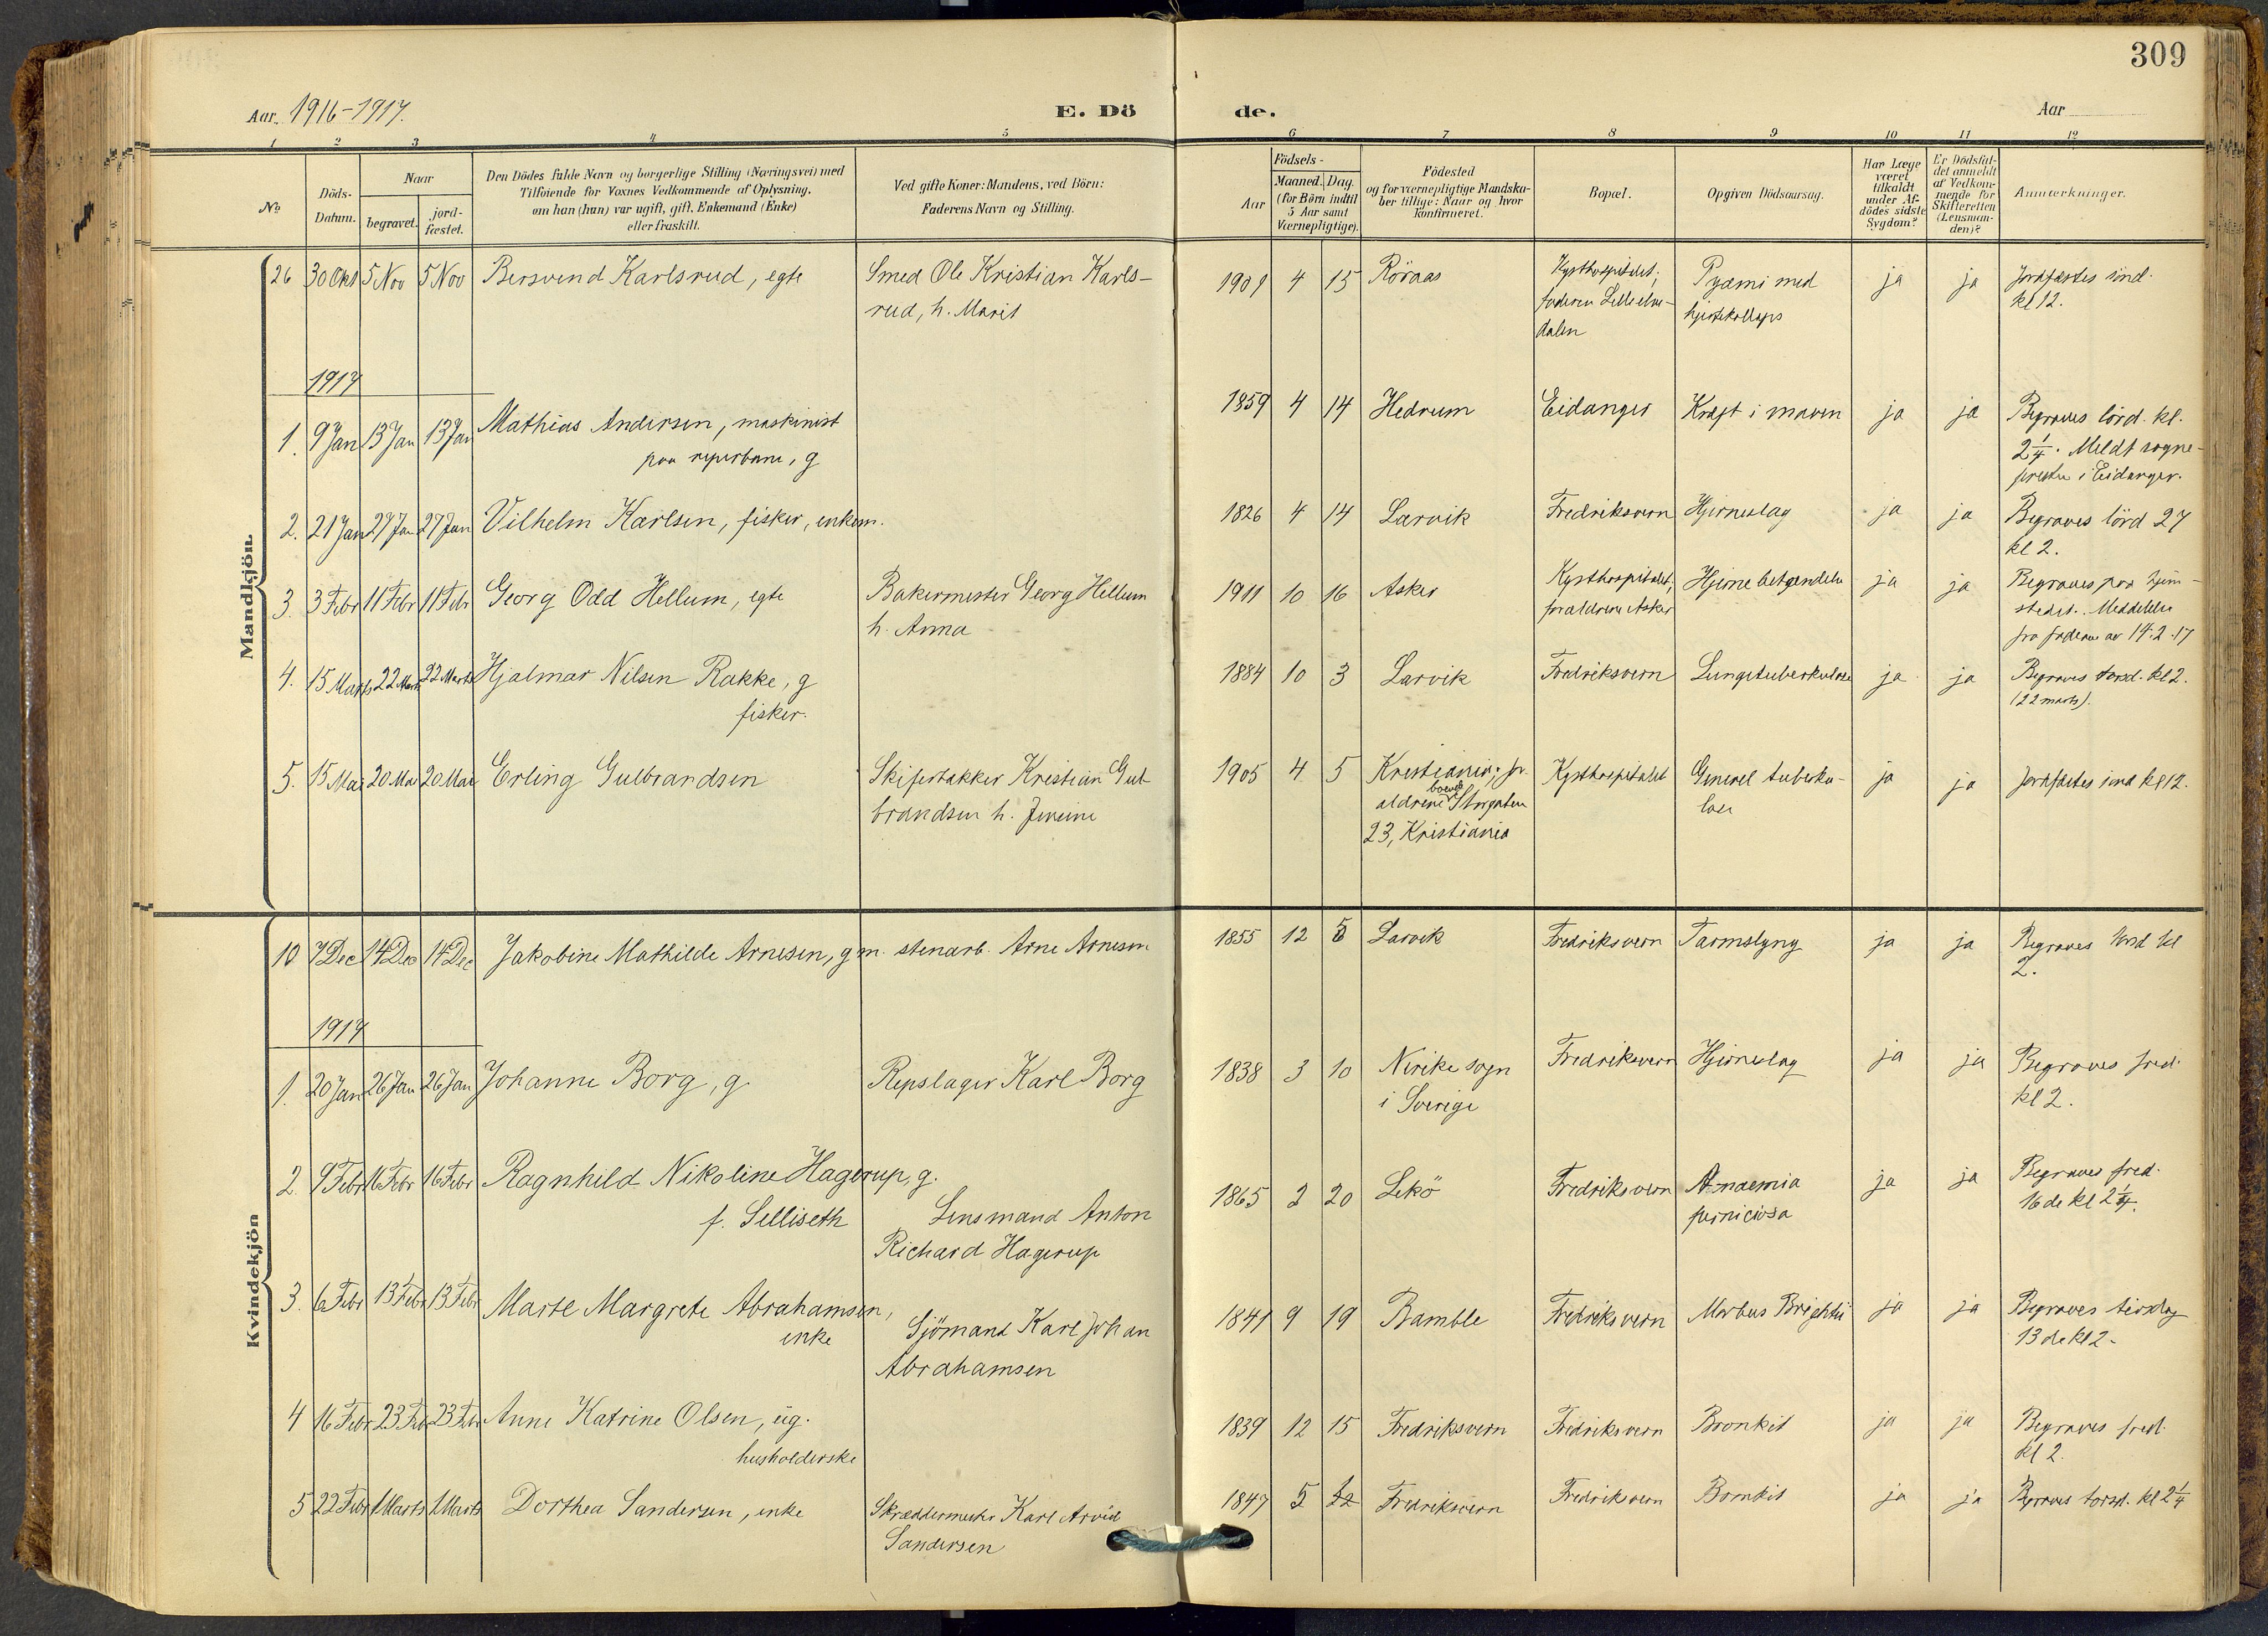 309
Aar 1916-1917.
E. Dö
de.
Aar
1 2 3 4 5 6 7 8 9 10 11 12
No
Döds-
Datum.
Naar
begravet.
jord-
fæstet.
Den Dödes fulde Navn og borgerlige Stilling (Næringsvei) med
Tilföiende for Voxnes Vedkommende af Oplysning,
om han (hun) var ugift, gift, Enkemand (Enke)
eller fraskilt.
Ved gifte Koner: Mandens, ved Börn:
Faderens Navn og Stilling.
Födsels-
Aar
Maaned. Dag.
(for Börn indtil
5 Aar samt
Værnepligtige).
Födested
og for værnepligtige Mandska-
ber tillige: Naar og hvor
konfirmeret.
Bopæl.
Opgiven Dödsaarsag.
Har Læge
været
tilkaldt
under Af-
dödes sidste
Sygdom?
Er Dödsfal-
det anmeldt
af Vedkom-
mende for
Skifteretten
(Lensman-
den)?
Anmærkninger.
Mandkjön.
26 30 Okt 5 Nov 5 Nov Bersvend Karlsrud, egte
Smed Ole Kristian Karls-
rud, h. Marit
1901 4 15 Röraas
Kysthospitalet;
faderen Lilleelve-
dalen
Pyæmi med
hjertekollaps
ja ja
Jordfæstes sönd.
kl 12.
1917
1. 9 Jan 13 Jan 13 Jan Mathias Andersen, maskinist
paa reperbane, g
1859 4 14 Hedrum Eidanger Kræft i maven ja ja
Begraves lörd. kl.
2 1/4. Meldt sogne-
presten i Eidanger.
2. 21 Jan 27 Jan 27 Jan Vilhelm Karlsen, fisker, enkem.
1826 4 14 Larvik Fredriksvern Hjerneslag ja ja
Begraves lörd 27
kl 2.
3. 3 Febr 11 Febr 11 Febr Georg Odd Hellum, egte
Bakermester Georg Hellum
h. Anna
1911 10 16 Asker
Kysthospitalet;
forældrene Asker
Hjerne betændelse ja ja
Begraves paa hjem-
stedet. Meddelelse
fra faderen av 14.2.17
4. 15 Marts 22 Marts 22 Marts Hjalmar Nilsen Rakke, g
fisker.
1884 10 3 Larvik Fredriksvern Lungetuberkulose ja ja
Begraves torsd. kl 2.
(22 marts).
5. 15 Mai 20 Mai 20 Mai Erling Gulbrandsen
Skifertækker Kristian Gul-
brandsen h.
1905 4 5 Kristiania; for-
ældrene boende Storgaten
23, Kristiania
Kysthospitalet
Generel tuberku-
lose
ja ja
Jordfæstes sönd kl 12.
Kvindekjön
10 7 Dec 14 Dec 14 Dec Jakobine Mathilde Arnesen, g m. stenarb. Arne Arnesen
1855 12 5 Larvik Fredriksvern Tarmslyng ja ja
Begraves torsd kl
2.
1917
1. 20 Jan 26 Jan 26 Jan Johanne Borg, g.
Repslager Karl Borg
1838 3 10 Nerike sogn
i Sverige
Fredriksvern Hjerneslag ja ja
Begraves fred.
kl 2.
2. 9 Febr 16 Febr 16 Febr Ragnhild Nikoline Hagerup, g.
f. Selliseth
Lensmand Anton
Richard Hagerup
1865 2 20 Lekö Fredriksvern
Anaemia
perniciosa
ja ja
Begraves fred.
16 de kl 2 1/4.
3. 6 Febr 13 Febr 13 Febr Marte Margrete Abrahamsen,
enke
Sjömand Karl Johan
Abrahamsen
1841 9 19 Bamble Fredriksvern Morbus Brightii ja ja
Begraves tirsdag
13 de kl 2.
4 16 Febr 23 Febr 23 Febr Anne Katrine Olsen, ug.
husholderske
1839 12 15 Fredriksvern Fredriksvern Bronkit ja ja
Begraves fred.
kl 2.
5 22 Febr 1 Marts 1 Marts Dorthea Sandersen, enke
Skræddermester Karl Arvid
Sandersen
1847 5 12 Fredriksvern Fredriksvern Bronkit ja ja
Begraves torsd. kl 2 1/4